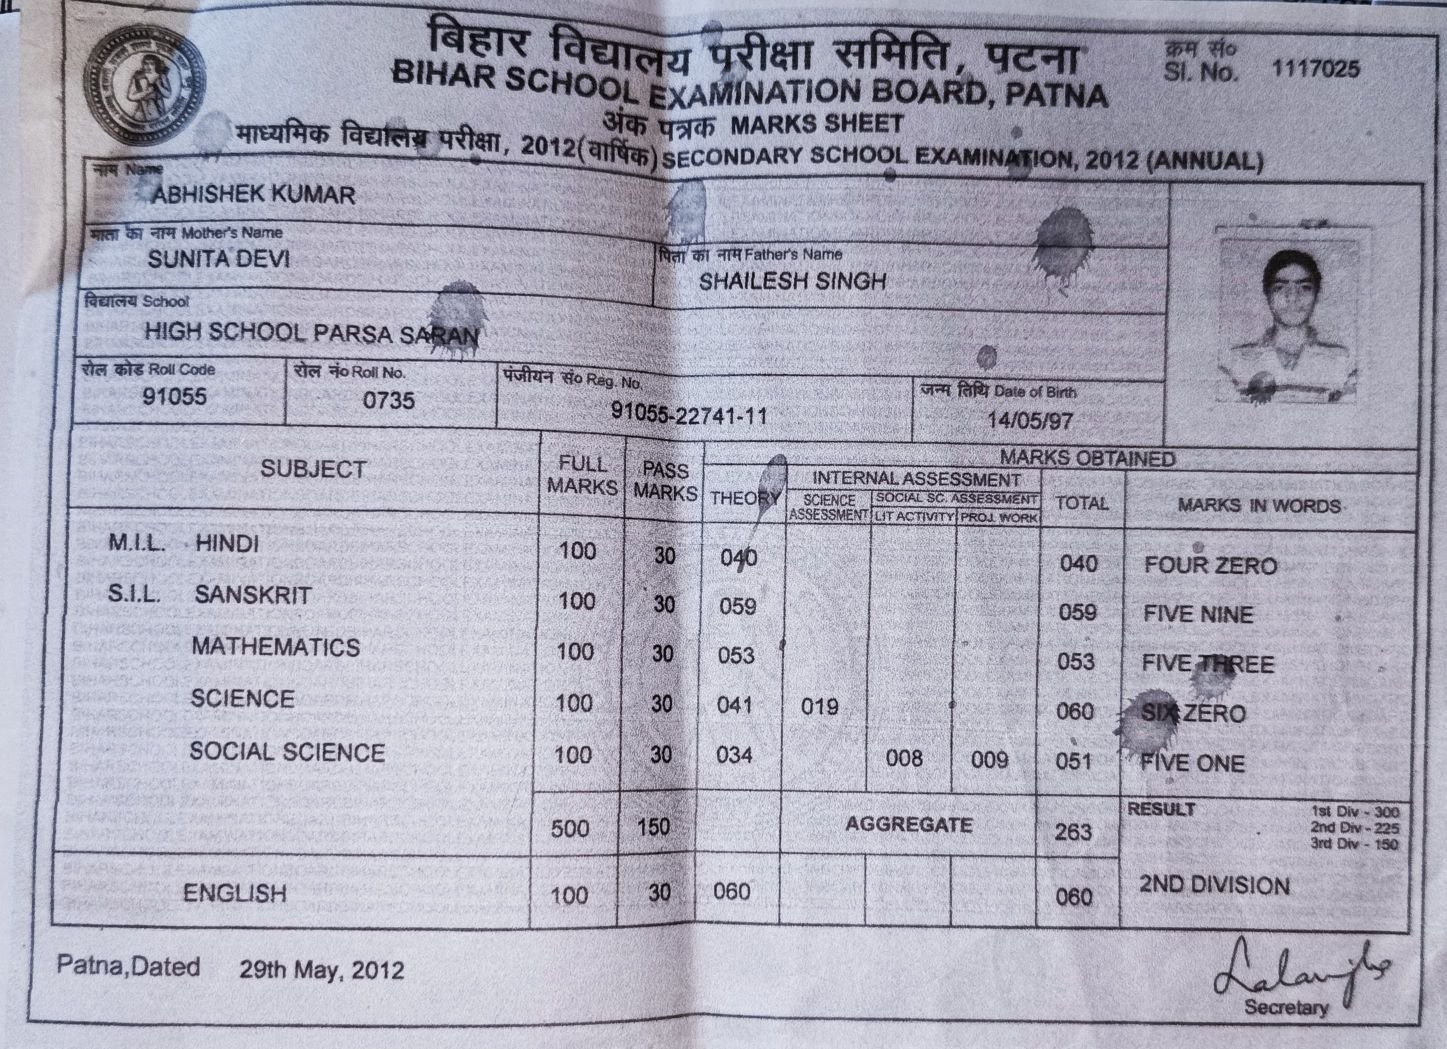 बिहार विद्यालय परीक्षा समिति, पटना
क्रम सं०
BIHAR SCHOOL EXAMINATION BOARD, PATNA
Sl. No. 1117025
अंक पत्रक MARKS SHEET
माध्यमिक विद्यालय परीक्षा, 2012(वार्षिक) SECONDARY SCHOOL EXAMINATION, 2012 (ANNUAL)
नाम Name
ABHISHEK KUMAR
माता का नाम Mother's Name
SUNITA DEVI
पिता का नाम Father's Name
SHAILESH SINGH
विद्यालय School
HIGH SCHOOL PARSA SARAN
रोल कोड Roll Code रोल नं० Roll No. पंजीयन सं० Reg. No. जन्म तिथि Date of Birth
91055 0735 91055-22741-11 14/05/97
SUBJECT FULL MARKS PASS MARKS MARKS OBTAINED
THEORY INTERNAL ASSESSMENT TOTAL MARKS IN WORDS
SCIENCE ASSESSMENT SOCIAL SC. ASSESSMENT
LIT ACTIVITY PROJ. WORK
M.I.L. HINDI 100 30 040 040 FOUR ZERO
S.I.L. SANSKRIT 100 30 059 059 FIVE NINE
MATHEMATICS 100 30 053 053 FIVE THREE
SCIENCE 100 30 041 019 060 SIX ZERO
SOCIAL SCIENCE 100 30 034 008 009 051 FIVE ONE
500 150 AGGREGATE 263
RESULT 1st Div - 300
2nd Div - 225
3rd Div - 150
ENGLISH 100 30 060 060 2ND DIVISION
Patna,Dated 29th May, 2012
Secretary